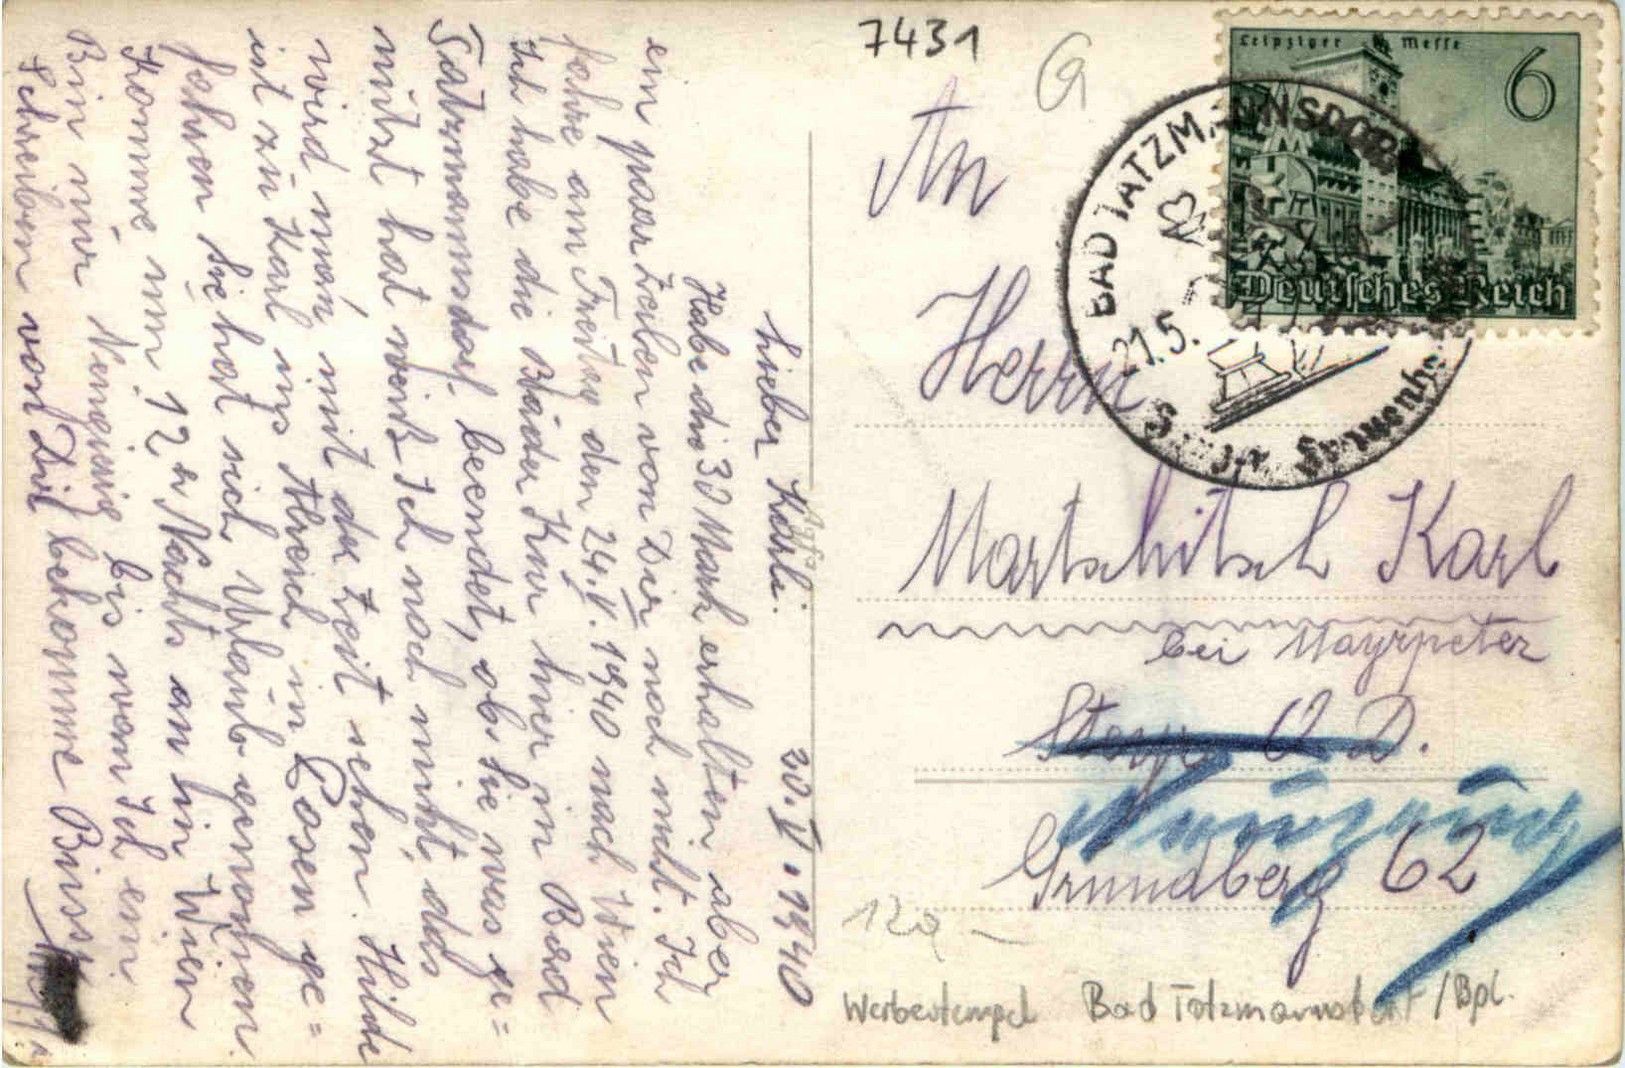 Lieber Karli. 20. V. 1940
Habe die 30 Mark erhalten aber
ein paar Zeilen von Dir noch nicht. Ich
fahre am Freitag den 24. V. 1940 nach Wien
Ich habe die Bäder Kur hier in Bad
Tatzmannsdorf beendet, ob sie was ge=
nützt hat weiß Ich noch nicht, das
wird man mit der Zeit sehen. Hilde
ist zu Karl ins Reich in Posen ge=
fahren sie hat sich Urlaub genohmen.
Komme um 12 h Nachts an in Wien
Bin nur Neugirig bis wan Ich ein
Schreiben von Dir bekomme Bussi
7431
G
An
Herrn
Martschitsch Karl
bei Mayrpeter
Steyr O. D.
Grundberg 62
Leipziger Messe
6
Deutsches Reich
BAD TATZMANNSDORF
21.5.
Agfa
Werbestempel Bad Tatzmannsdorf /Bgl.